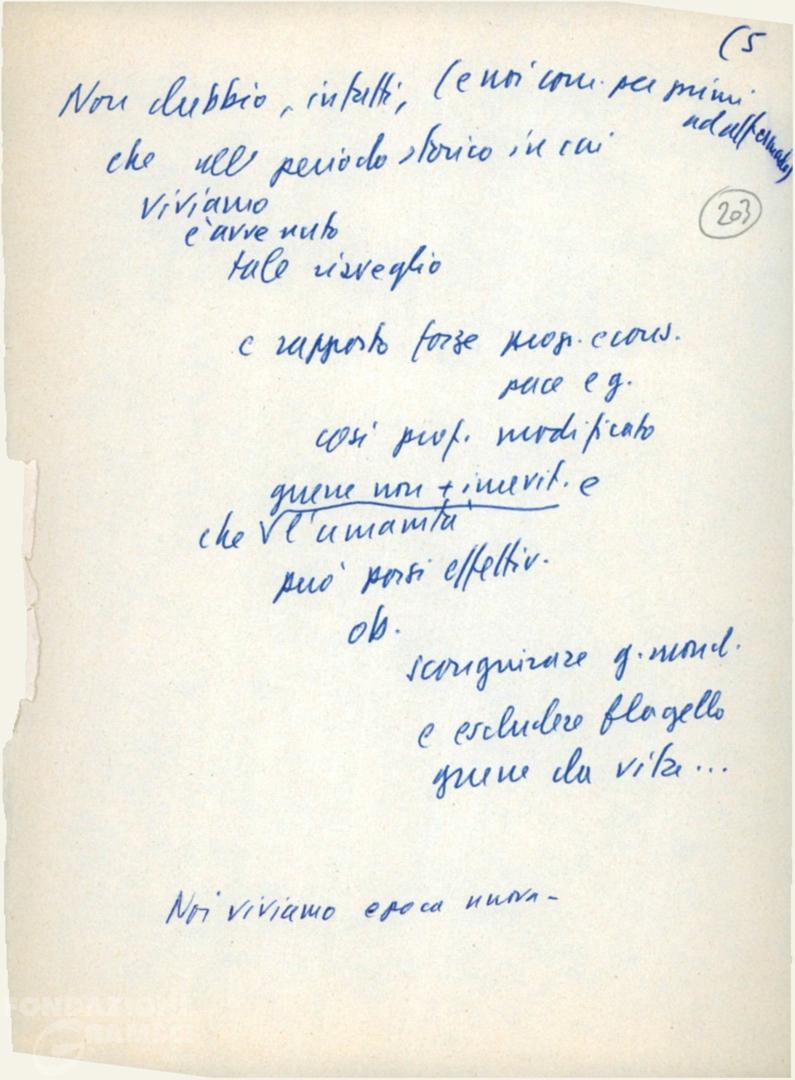 (5
Non dubbio, infatti, (e noi com. per primi
ad affermarlo)
che nell periodo storico in cui
viviamo
203
è avvenuto
tale risveglio
e rapporto forze progr. e cons.
pace e g.
così prof. modificato
guerre non + inevit. e
che l'umanità
può porsi effettiv.
ob.
scongiurare g. mond.
e escludere flagello
guerre da vita...
Noi viviamo epoca nuova-
FONDAZIONE
GRAMSCI